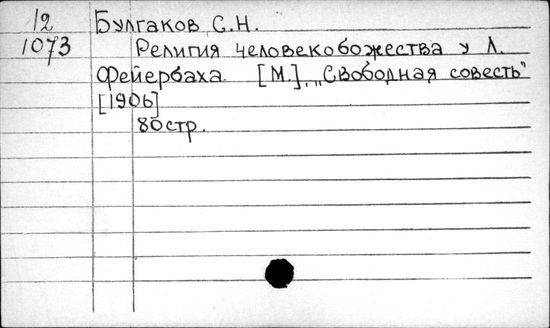 12
1073
Булгаков С.Н.
Религия человекобожества у Л.
Фейербаха. [М.], „Свободная совесть"
[1906]
80стр.